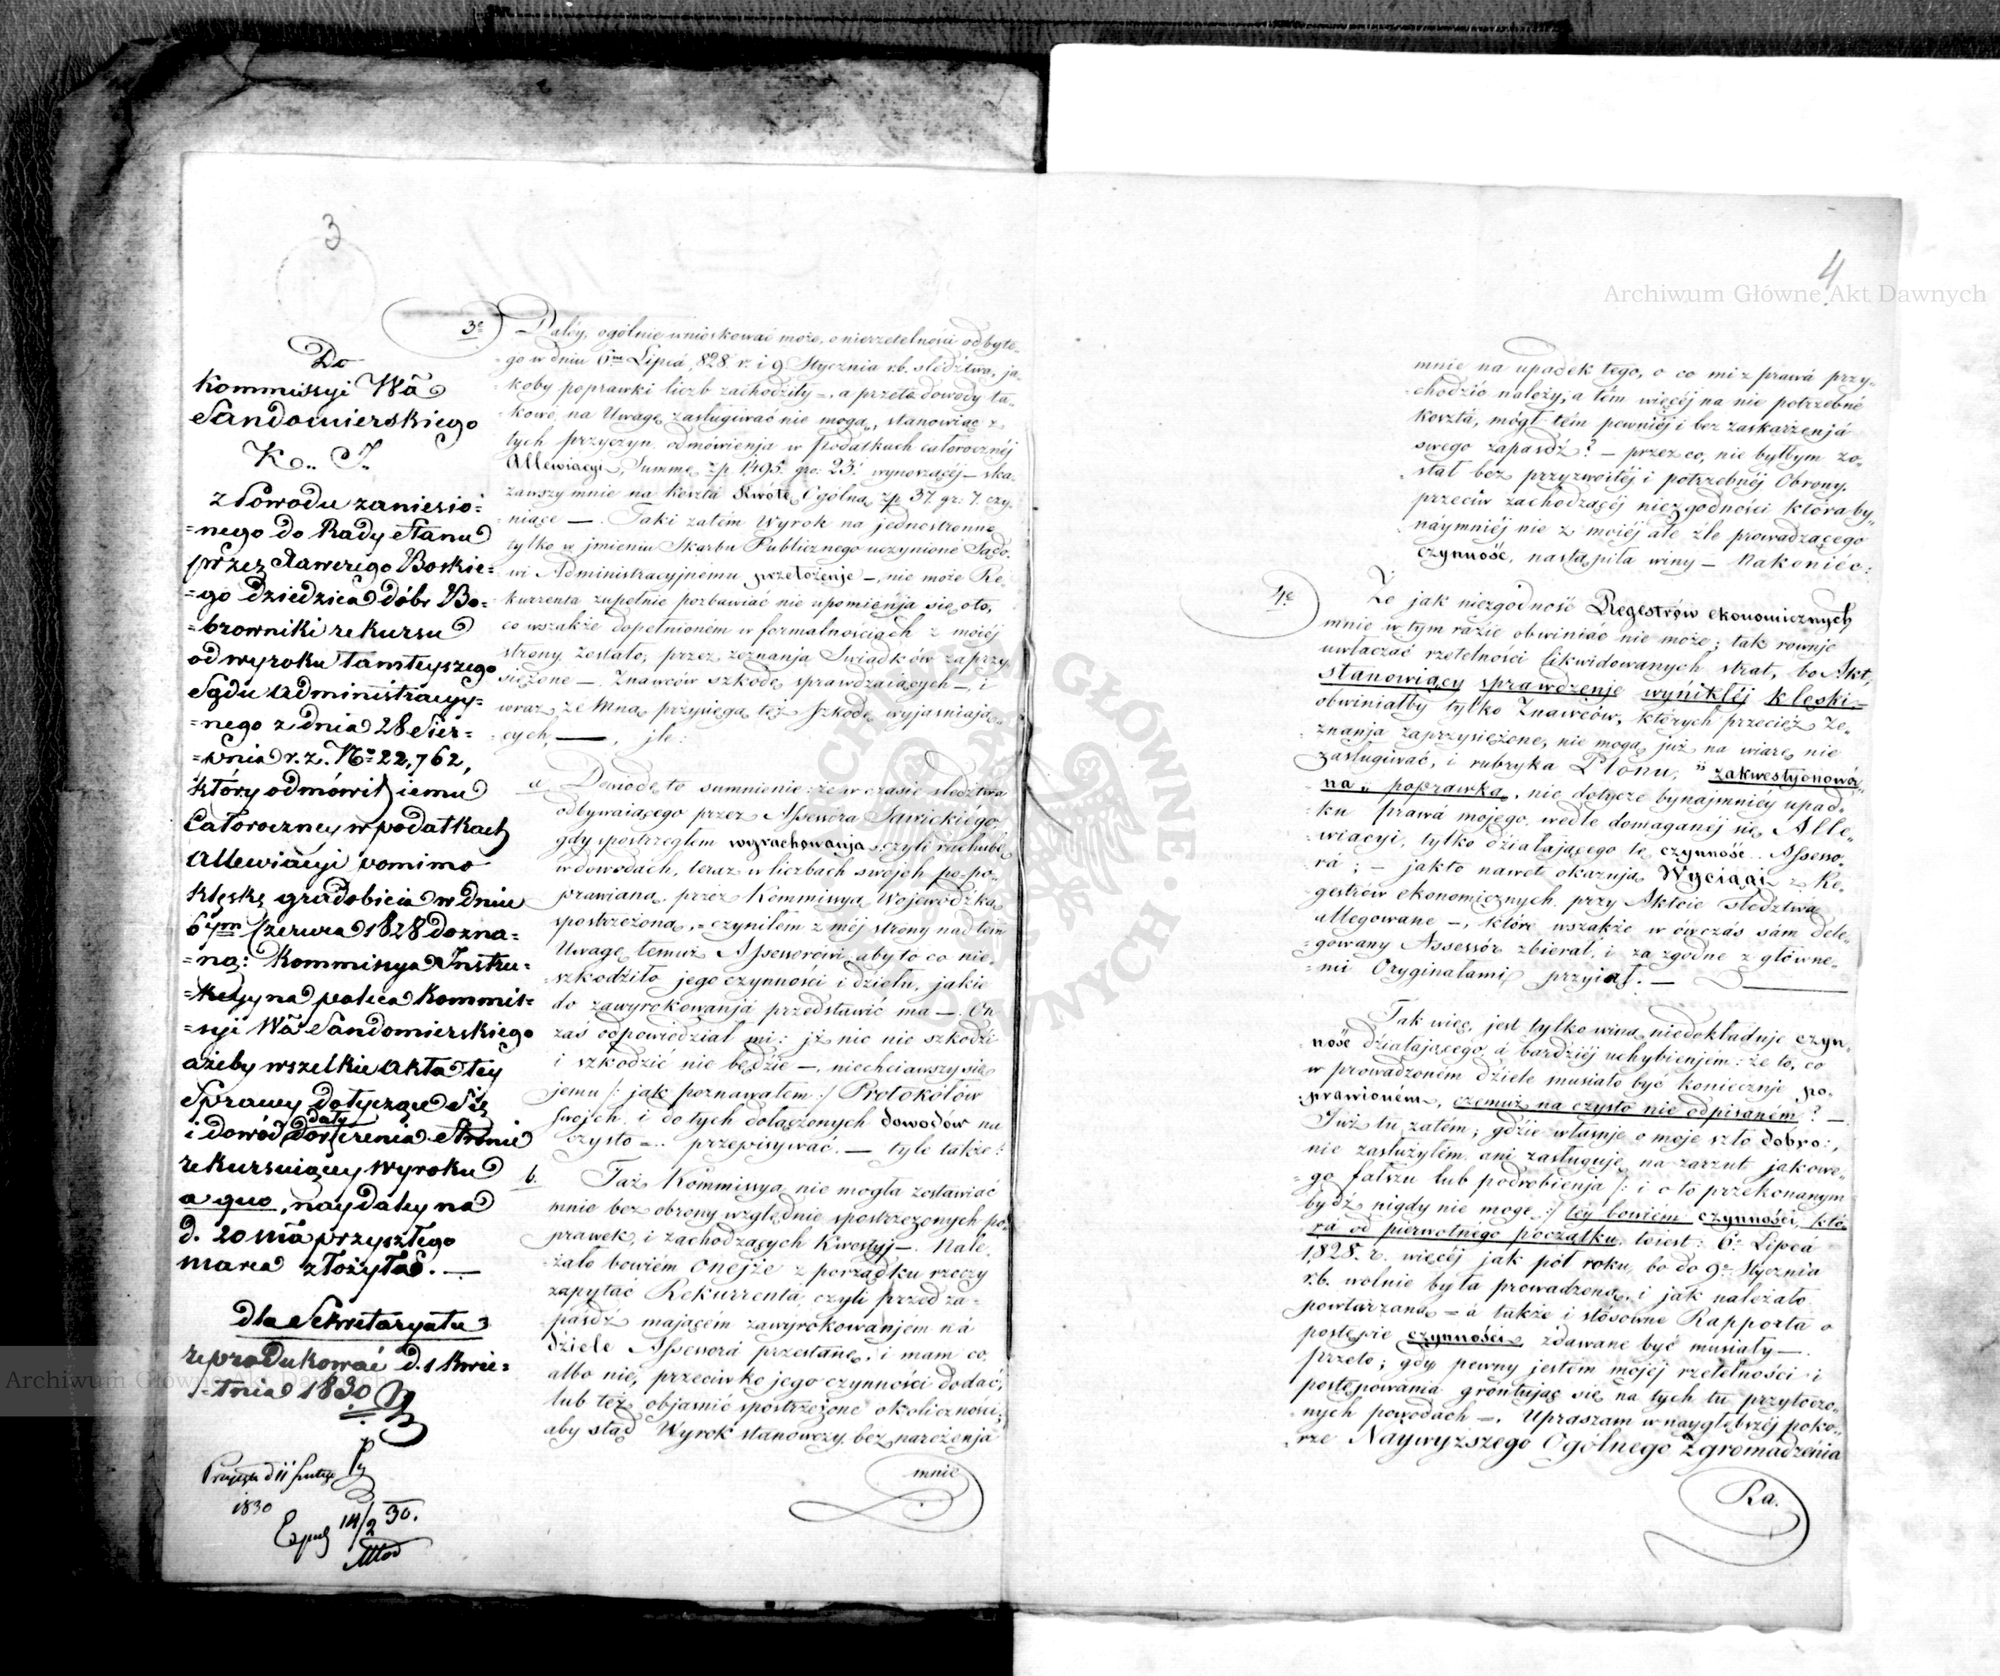 3
Do
Kommissyi Wa
Sandomierskiego
K.. J.
z Powodu zaniesio=
=nego do Rady Stanu
przez Xawerego Boskie=
=go Dziedzica dóbr Bo=
=browniki rekursu
od wyroku tamteyszego
Sądu Administracyy=
=nego z dnia 28 Sier=
=pnia r. z. No 22,762,
który odmówił iemu
Całoroczney w podatkach
Allewiacyi pomimo
klęskę gradobicia w dniu
6ym Czerwca 1828 dozna=
=ną: Kommissya Instru=
=kcyyna poleca Kommis=
=syi Wa Sandomierskiego
ażeby wszelkie Akta tey
Sprawy dotyczące Się
i dowód daty doręczenia Stronie
rekursuiącey Wyroku
a quo, naydaley na
d. 20 ma przyszłego
marca złożyła. —
dla Sekretaryatu
reprodukować d. 1 Kwie=
=tnia 1830
Przyjęta d 11 Lutego
1830
Exped 14/2 30.
3e Daléy, ogólnie wnioskować może, o nierzetelności odbyte=
=go w dniu 6m Lipca 828 r. i 9 Stycznia r.b. śledztwa, ja=
=koby poprawki liczb zachodziły =, a przeto dowody ta=
=kowe, na Uwagę zasługiwać nie mogą, stanowiąc z
tych przyczyn odmówienja w Podatkach całorocznéj
Allewiacyi, Summę zp 1,495 gro: 23 wynoszącéj — ska=
zawszy mnie na koszta kwotę Ogólną zp 37. gr: 7. czy=
niące —. Taki zatém Wyrok na jednostronne
tylko w jmieniu Skarbu Publicznego uczynione Sądo=
wi Administracyjnému przełożenje —, nie może Re=
kurrenta zupełnie pozbawiać nie upomienja się oto,
co wszakże dopełnioném w formalnościach z mojéj
strony zostało, przez zeznanja Swiadków zaprzy=
siężone —. Znawców szkodę sprawdzaiących —, i
wraz ze Mną przysięgą też Szkodę wyjasniają=
=cych, —, jle:
a. Dowodę to sumnienie: że w czasie śledztwa
odbywaiącego przez Assessora Sawickiégo,
gdy spostrzegłem wyrachowanja, czyli rachubę
w dowodach, teraz w liczbach swojch po=po=
prawiana, przez Kommissyą Wojewódzką
spostrzeżoną, = czyniłem z méj strony nad tém
Uwagę temuż Assessorowi, aby to co nie
szkodziło jego czynności i dziełu, jakie
do zawyrokowanja przedstawić ma —. On
zaś odpowiedział mi: jż nic nie szkodzi
i szkodzić nie będzie —, niechciawszy się
jemu /: jak poznawałem :/ Protokołów
swojch i do tych dołączonych dowodów na
czysto =. przepisywać. — tyle także:
b. Taż Kommissya nie mogła zostawiać
mnie bez obrony względnie spostrzeżonych po=
prawek, i zachodzących Kwestyj —. Nale=
żało bowiém Onejże z porządku rzeczy
zapytać Rekurrenta, czyli przed za=
paśdź mającém zawyrokowanjem na
dziele Assessora przestanę, i mam co,
albo nie, przeciwko jego czynności dodać;
lub też objasnić spostrzeżone okoliczności;
aby stąd Wyrok stanowczy, bez narożenja
mnie
4
mnie na upadek tego, o co mi z prawa przy=
=chodzić należy; a tém więcéj na nie potrzebne
koszta, mógł tém pewniéj i bez zaskarżenja
swego zapaśdź? — przez co, nie byłbym zo=
stał bez przyzwoitéj i potrzebnéj Obrony,
przeciw zachodzącéj niezgodności któraby
naymniéj nie z mojéj ale źle prowadzącego
czynność, nastąpiła winy — Nakoniéc:
4e Że jak niezgodność Regestrów ekonomicznych
mnie w tym razie obwiniać nie może; tak rownje
uwłaczać rzetelności likwidowanych strat, bo Akt,
stanowiący sprawdzenje wynikłéj klęski —
obwiniałby tylko Znawców, których przecież ze=
znanja zaprzysiężone, nie mogą już na wiarę nie
zasługiwać, i rubryka Plonu, " zakwestyonowa=
na „ poprawką, nie dotycze bynajmniéy upad=
ku prawa mojego, wedle domaganéj się Alle=
wiacyi, tylko działającego tę czynność Assesso=
ra; — jakto nawet okazują Wyciągi z Re=
gestrów ekonomicznych przy Akcie śledztwa
allegowane —, które wszakże w ówczas sám dele=
=gowany Assessór zbierał, i za zgodne z główne=
=mi Oryginałami przyiął. —
Tak więc, jest tylko wina, niedokładnje czyn=
ność działającego, a bardziéj uchybienjém: że to, co
w prowadzoném dziele musiało być koniecznje po=
prawioném, czemuż na czysto nie odpisaném? —
Już tu zatém; gdzie własnje o moje szło dobro:,
nie zasłużyłem ani zasługuję na zarzut jakowe=
go fałszu lub podrobienja /: i o to przekonanym
bydź nigdy nie mogę :/ téy bowiém czynności, któ=
ra od pierwotnégo początku, to iest: 6e Lipca
1828. r. więcéj jak pół roku, bo do 9e Stycznia
r.b. wolnie była prowadzoną, i jak należało
powtarzaną = a także i stósowne Rapporta o
postępie czynności, zdawane być musiały —.
Przeto; gdy pewny jestem mojéj rzetelności i
postępowánia gruntując się na tych tu przytoczo=
nych powodach =. Upraszam w naygłębszéj poko=
rze Naywyższego Ogólnego Zgromadzenia
Ra.
Archiwum Główne Akt Dawnych
Archiwum Główne Akt Dawnych
ARCHIWUM GŁÓWNE AKT DAWNYCH